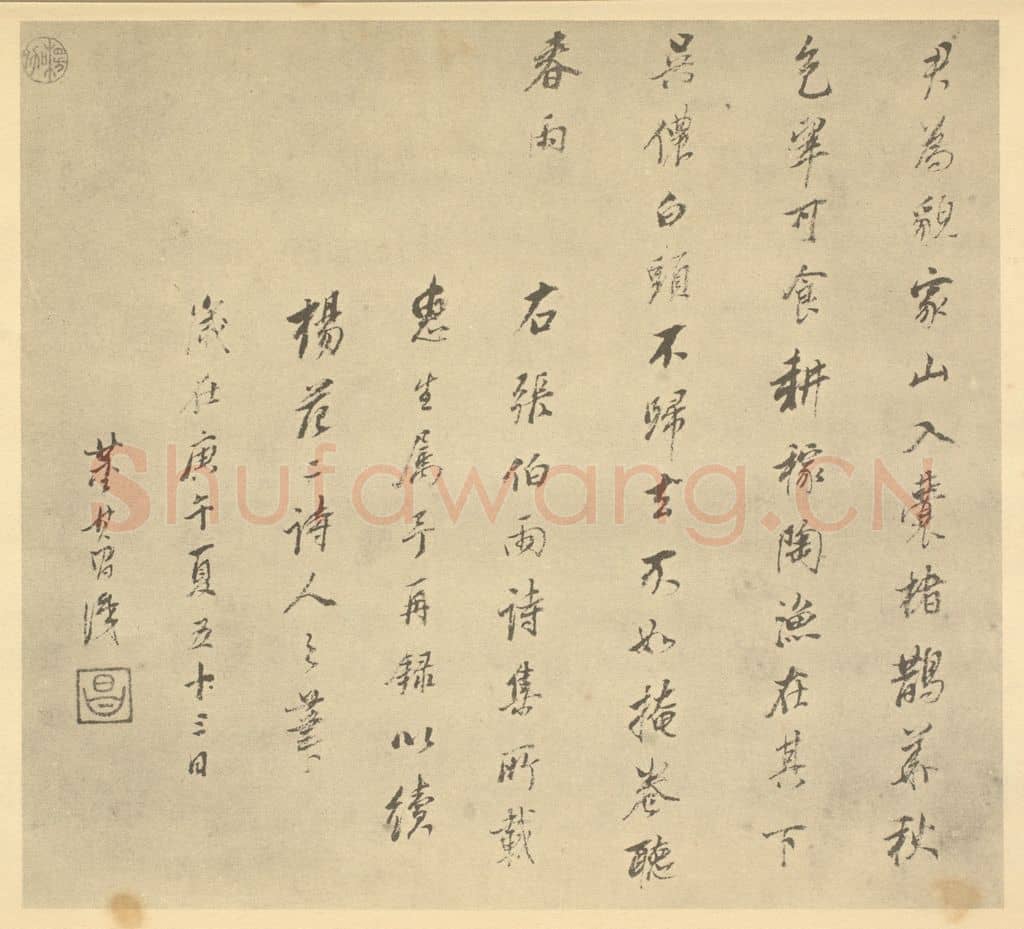 君為貌家山入囊楮鵲華秋
色翠可食耕稼陶漁在其下
吳儂白頭不歸去不如掩卷聽
春雨
右張伯雨詩集所載
惠生属予再録以續
楊范二詩人之筆
歲在庚午夏五十三日
董其昌識
昌
Shufawang.CN